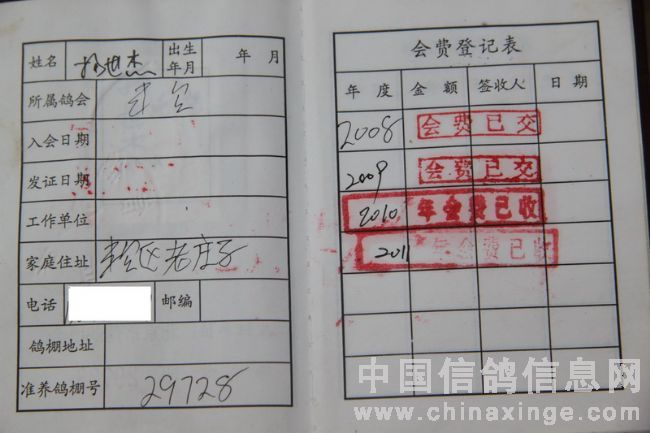 姓名 杨世杰 出生年月 年 月
所属鸽会
入会日期
发证日期
工作单位
家庭住址 老庄子
电话 邮编
鸽棚地址
准养鸽棚号 29728
会费登记表
年 度 金 额 签收人 日 期
2008 会费已交
2009 会费已交
2010 年会费已收
2011 年会费已收
中国信鸽信息网
www.chinaxinge.com